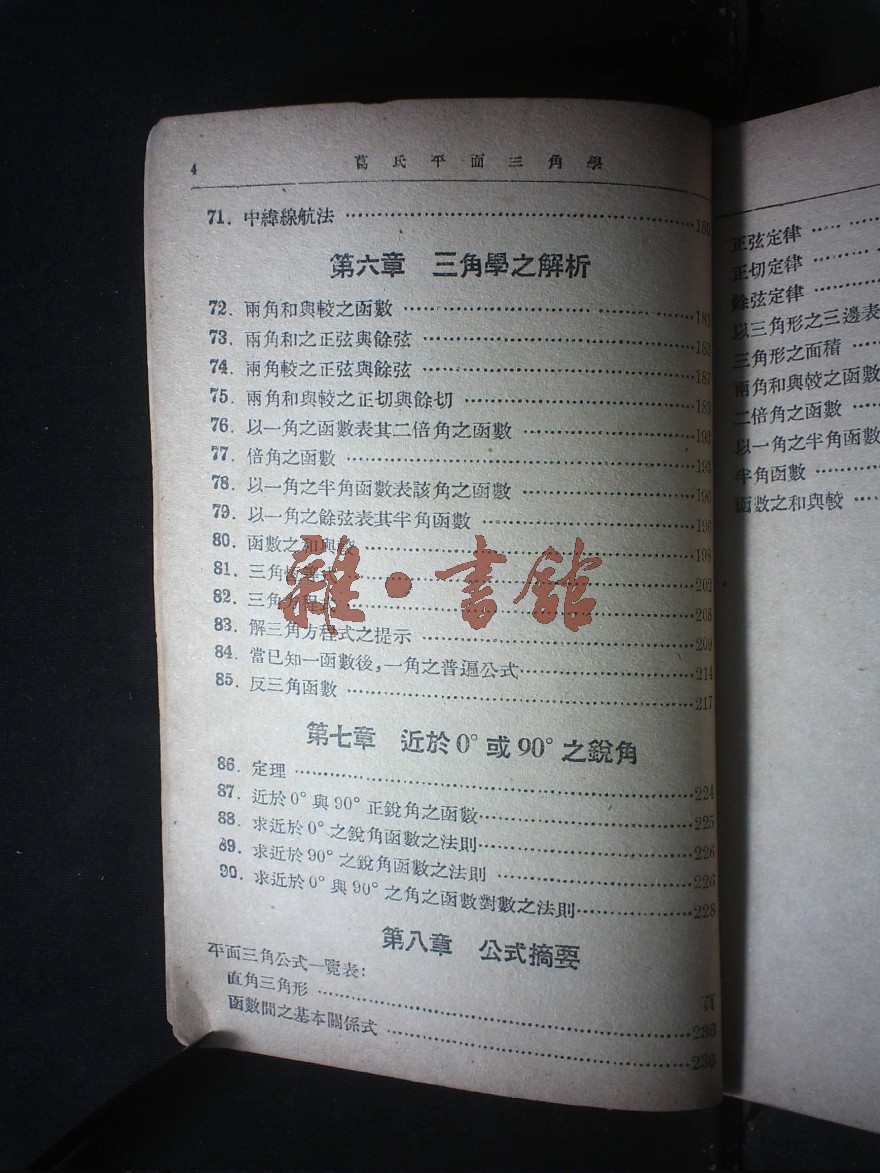 4 葛氏平面三角學
71. 中緯線航法 180
第六章 三角學之解析
72. 兩角和與較之函數 183
73. 兩角和之正弦與餘弦 183
74. 兩角較之正弦與餘弦 187
75. 兩角和與較之正切與餘切 189
76. 以一角之函數表其二倍角之函數 193
77. 倍角之函數 193
78. 以一角之半角函數表該角之函數 196
79. 以一角之餘弦表其半角函數 196
80. 函數之和與較 198
81. 三角 202
82. 三角方程式 208
83. 解三角方程式之提示 209
84. 當已知一函數後,一角之普遍公式 214
85. 反三角函數 217
第七章 近於0°或90°之銳角
86. 定理 224
87. 近於0°與90°正銳角之函數 225
88. 求近於0°之銳角函數之法則 226
89. 求近於90°之銳角函數之法則 226
90. 求近於0°與90°之角之函數對數之法則 228
第八章 公式摘要
平面三角公式一覽表:
頁
直角三角形 236
函數間之基本關係式 236
雜·書館
正弦定律
正切定律
餘弦定律
以三角形之三邊表
三角形之面積
兩角和與較之函數
二倍角之函數
以一角之半角函數
半角函數
函數之和與較